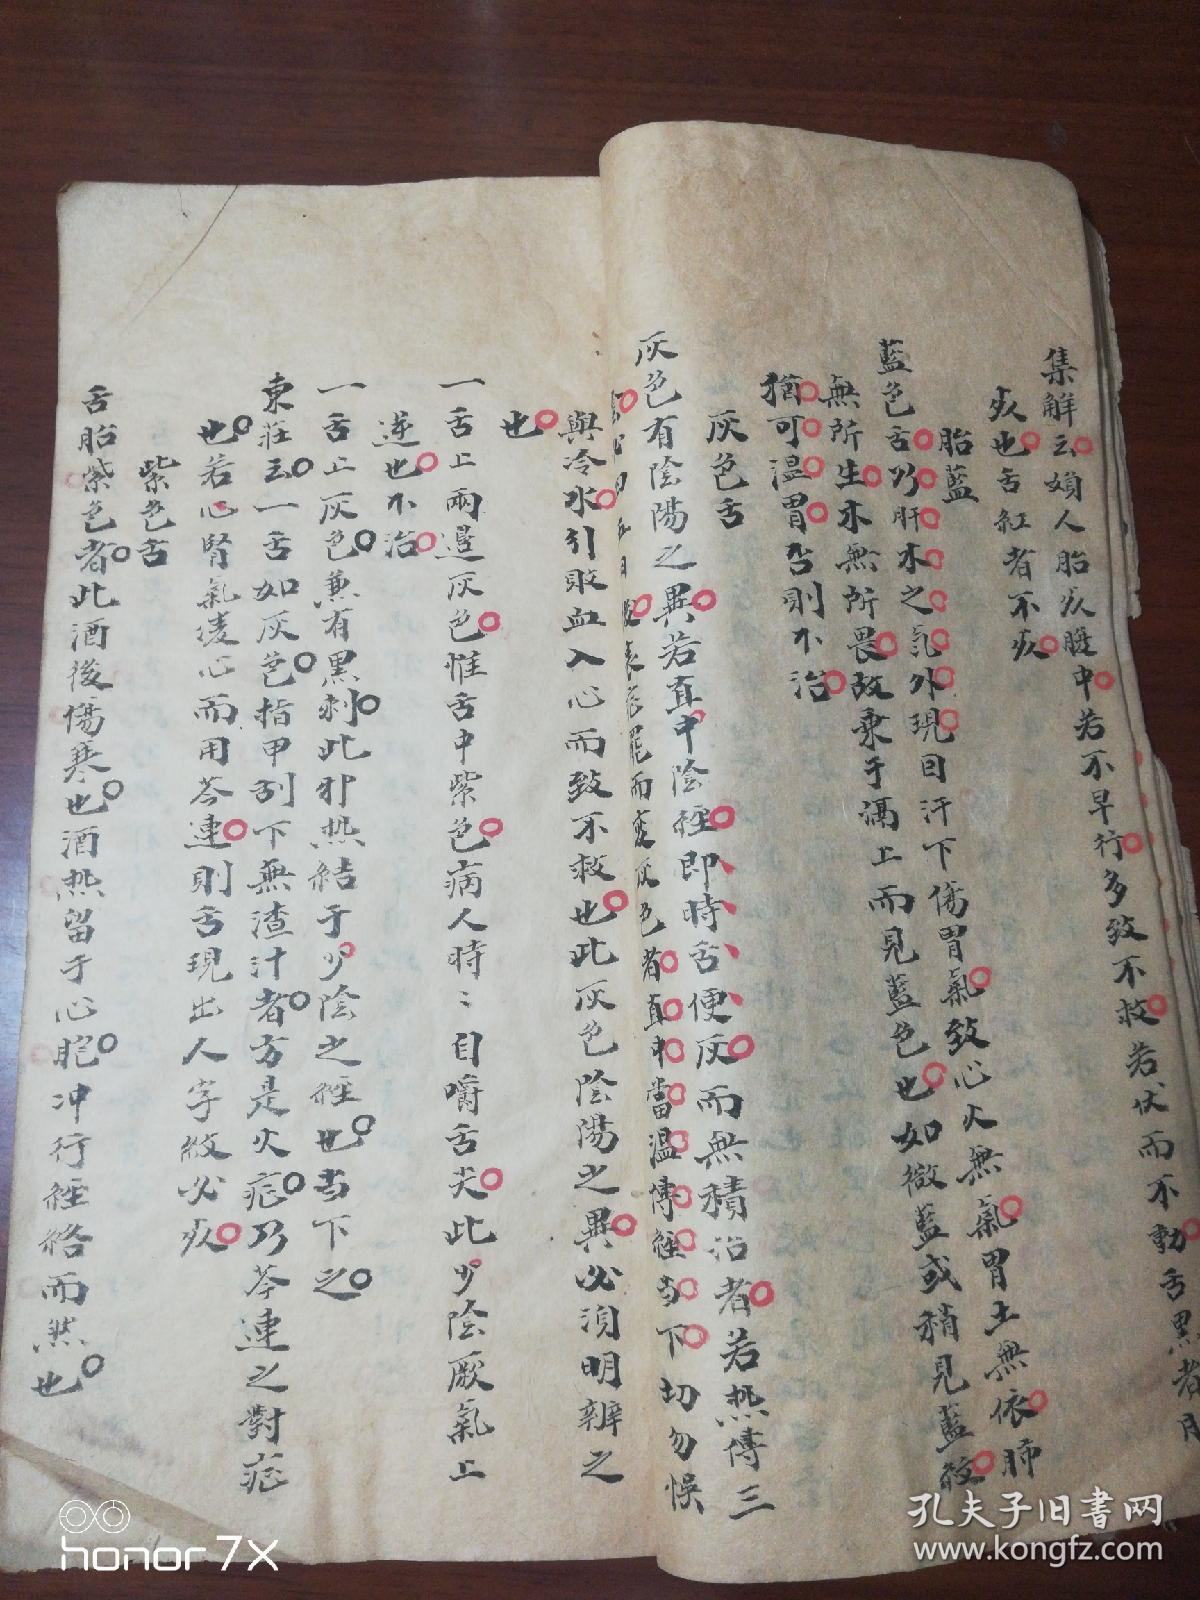 集解云娠人胎疚腹中若不早行多致不救若伏而不動舌黑者
疚也舌紅者不疚
胎藍
藍色舌乃肝木之氣外現因汗下傷胃氣致心火無氣胃土無依肺
無所生木無所畏故乘于満上而見藍色也如微藍或稍見藍紋
猶可温胃否則不治
灰色舌
灰色有陰陽之異若直中陰経即時舌便灰而無積治者若热傳三
四五日表症罷而変灰色者直中當温傳経当下切勿悞
與冷水引敗血入心而致不救也此灰色陰陽之異必須明辨之
也
一舌上兩邉灰色惟舌中紫色病人時〻自嚼舌尖此少陰厥氣上
逆也不治
一舌上灰色兼有黑刺此邪热結于少陰之経也当下之
東莊云一舌如灰色指甲刮下無渣汁者方是火症乃芩連之對症
也若心腎氣凌心而用芩連則舌現出人字紋必疚
紫色舌
舌胎紫色者此酒後傷寒也酒热留于心胞冲行経絡而然也
孔夫子旧书网
www.kongfz.com
honor 7X